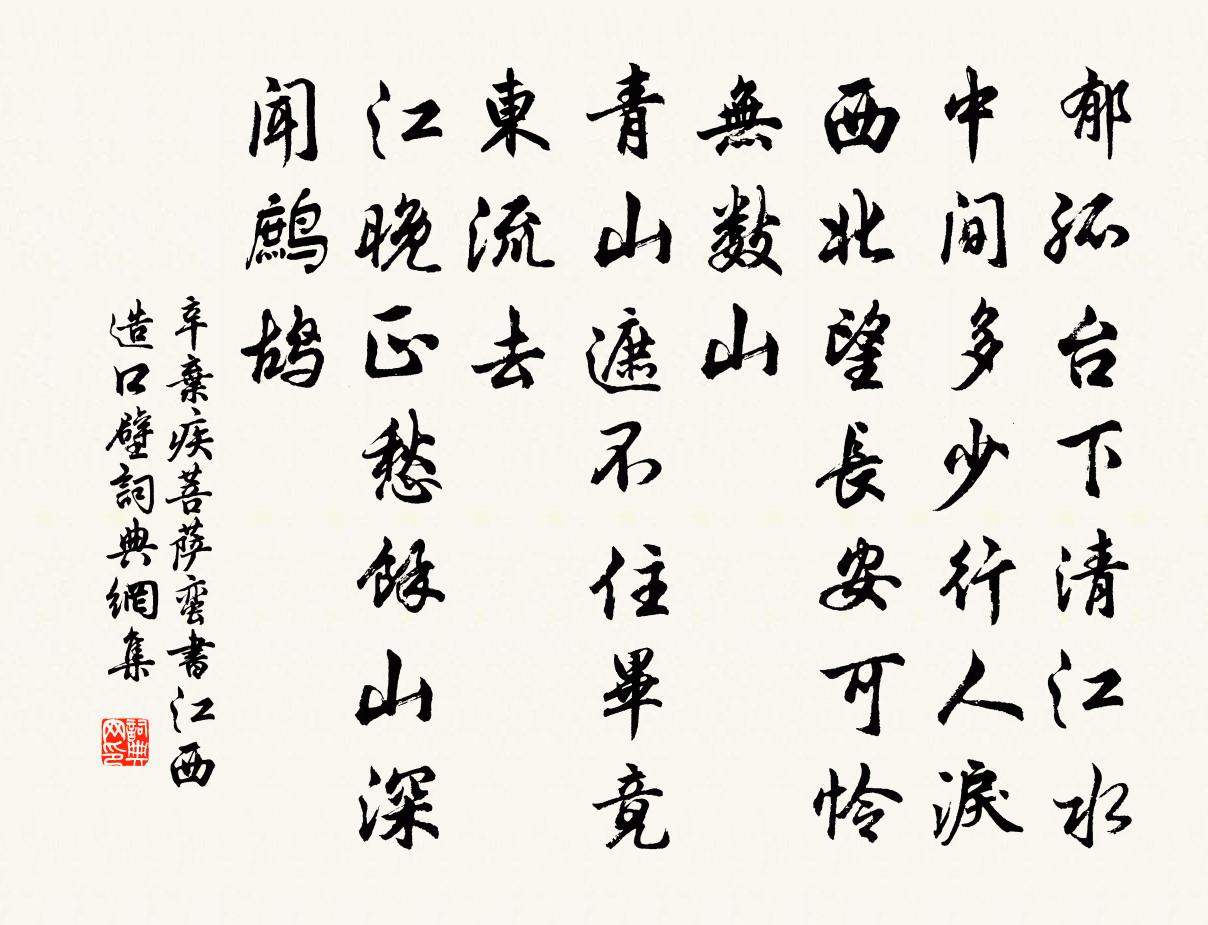 郁孤台下清江水
中间多少行人淚
西北望長安可怜
無數山
青山遮不住畢竟
東流去
江晚正愁餘山深
闻鷓鸪
辛棄疾菩萨蛮書江西
造口壁詞典網集
詞典网印